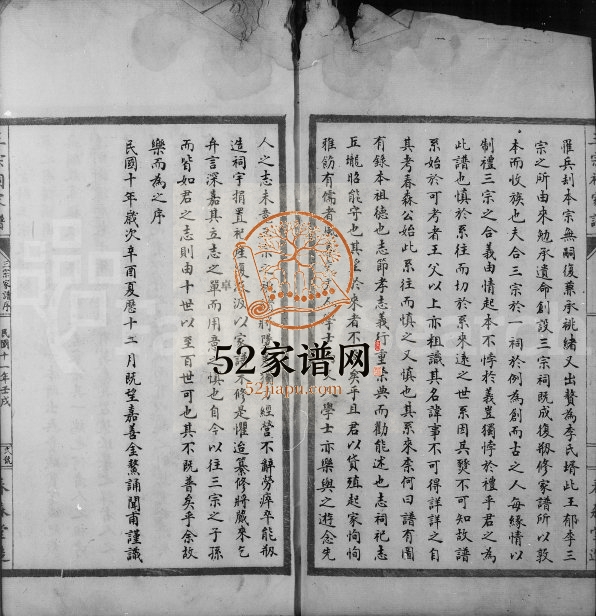 罹兵刦本宗無嗣復兼承祧緒又出贅為李氏壻此王郁李三
宗之所由來勉承遺命創設三宗祠既成復刱修家譜所以敦
本而收族也夫合三宗於一祠於例為創而古之人每緣情以
制禮三宗之合義由情起本不悖於義豈獨悖於禮乎君之為
此譜也慎於系往而切於系來遠之世系固其燹不可知故譜
系始於可考者王父以上亦祖識其名諱事不可得詳詳之自
其考春森公始此系往而慎之又慎也其系來柰何曰譜有圖
有錄本祖德也志節孝志義行重宗典而勸能述也志祠祀志
丘壠昭能守也其 於來者不 矣乎且君以貨殖起家恂恂
雅飭有儒者 人學士 學士亦樂與之遊念先
人之志未 宗之 經營不辭勞瘁卒能刱
造祠宇捐置祀產復 汲以家譜不修是懼迨纂修將蕆來乞
弁言深嘉其立志之單而用 慎也自今以往三宗之子孫
而皆如君之志則由十世以至百世可也其不既善矣乎余故
樂而為之序
民國十年歲次辛酉夏曆十二月既望嘉善金 誦聞甫謹識
三宗家譜序
民國十一年壬戌
52家谱网
52jiapu.com